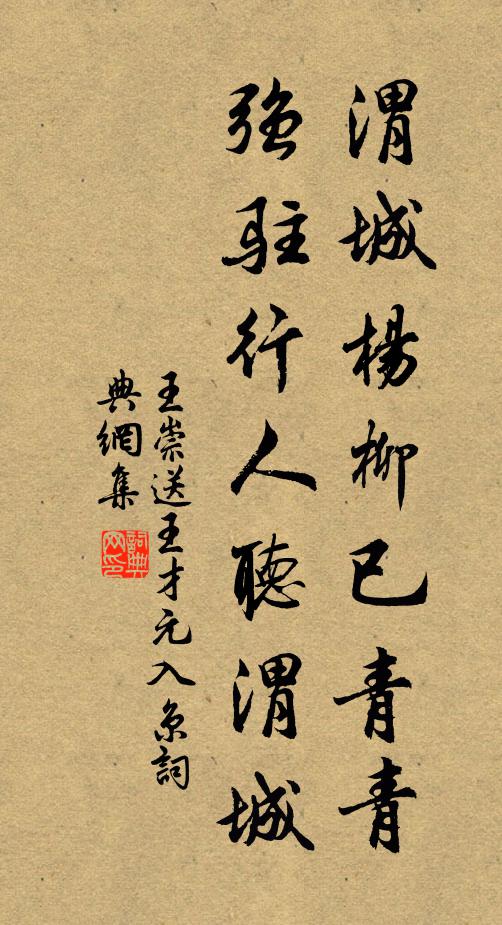 渭城楊柳已青青
強駐行人聽渭城
王崇送王才元入京詞
典網集
詞典
網印